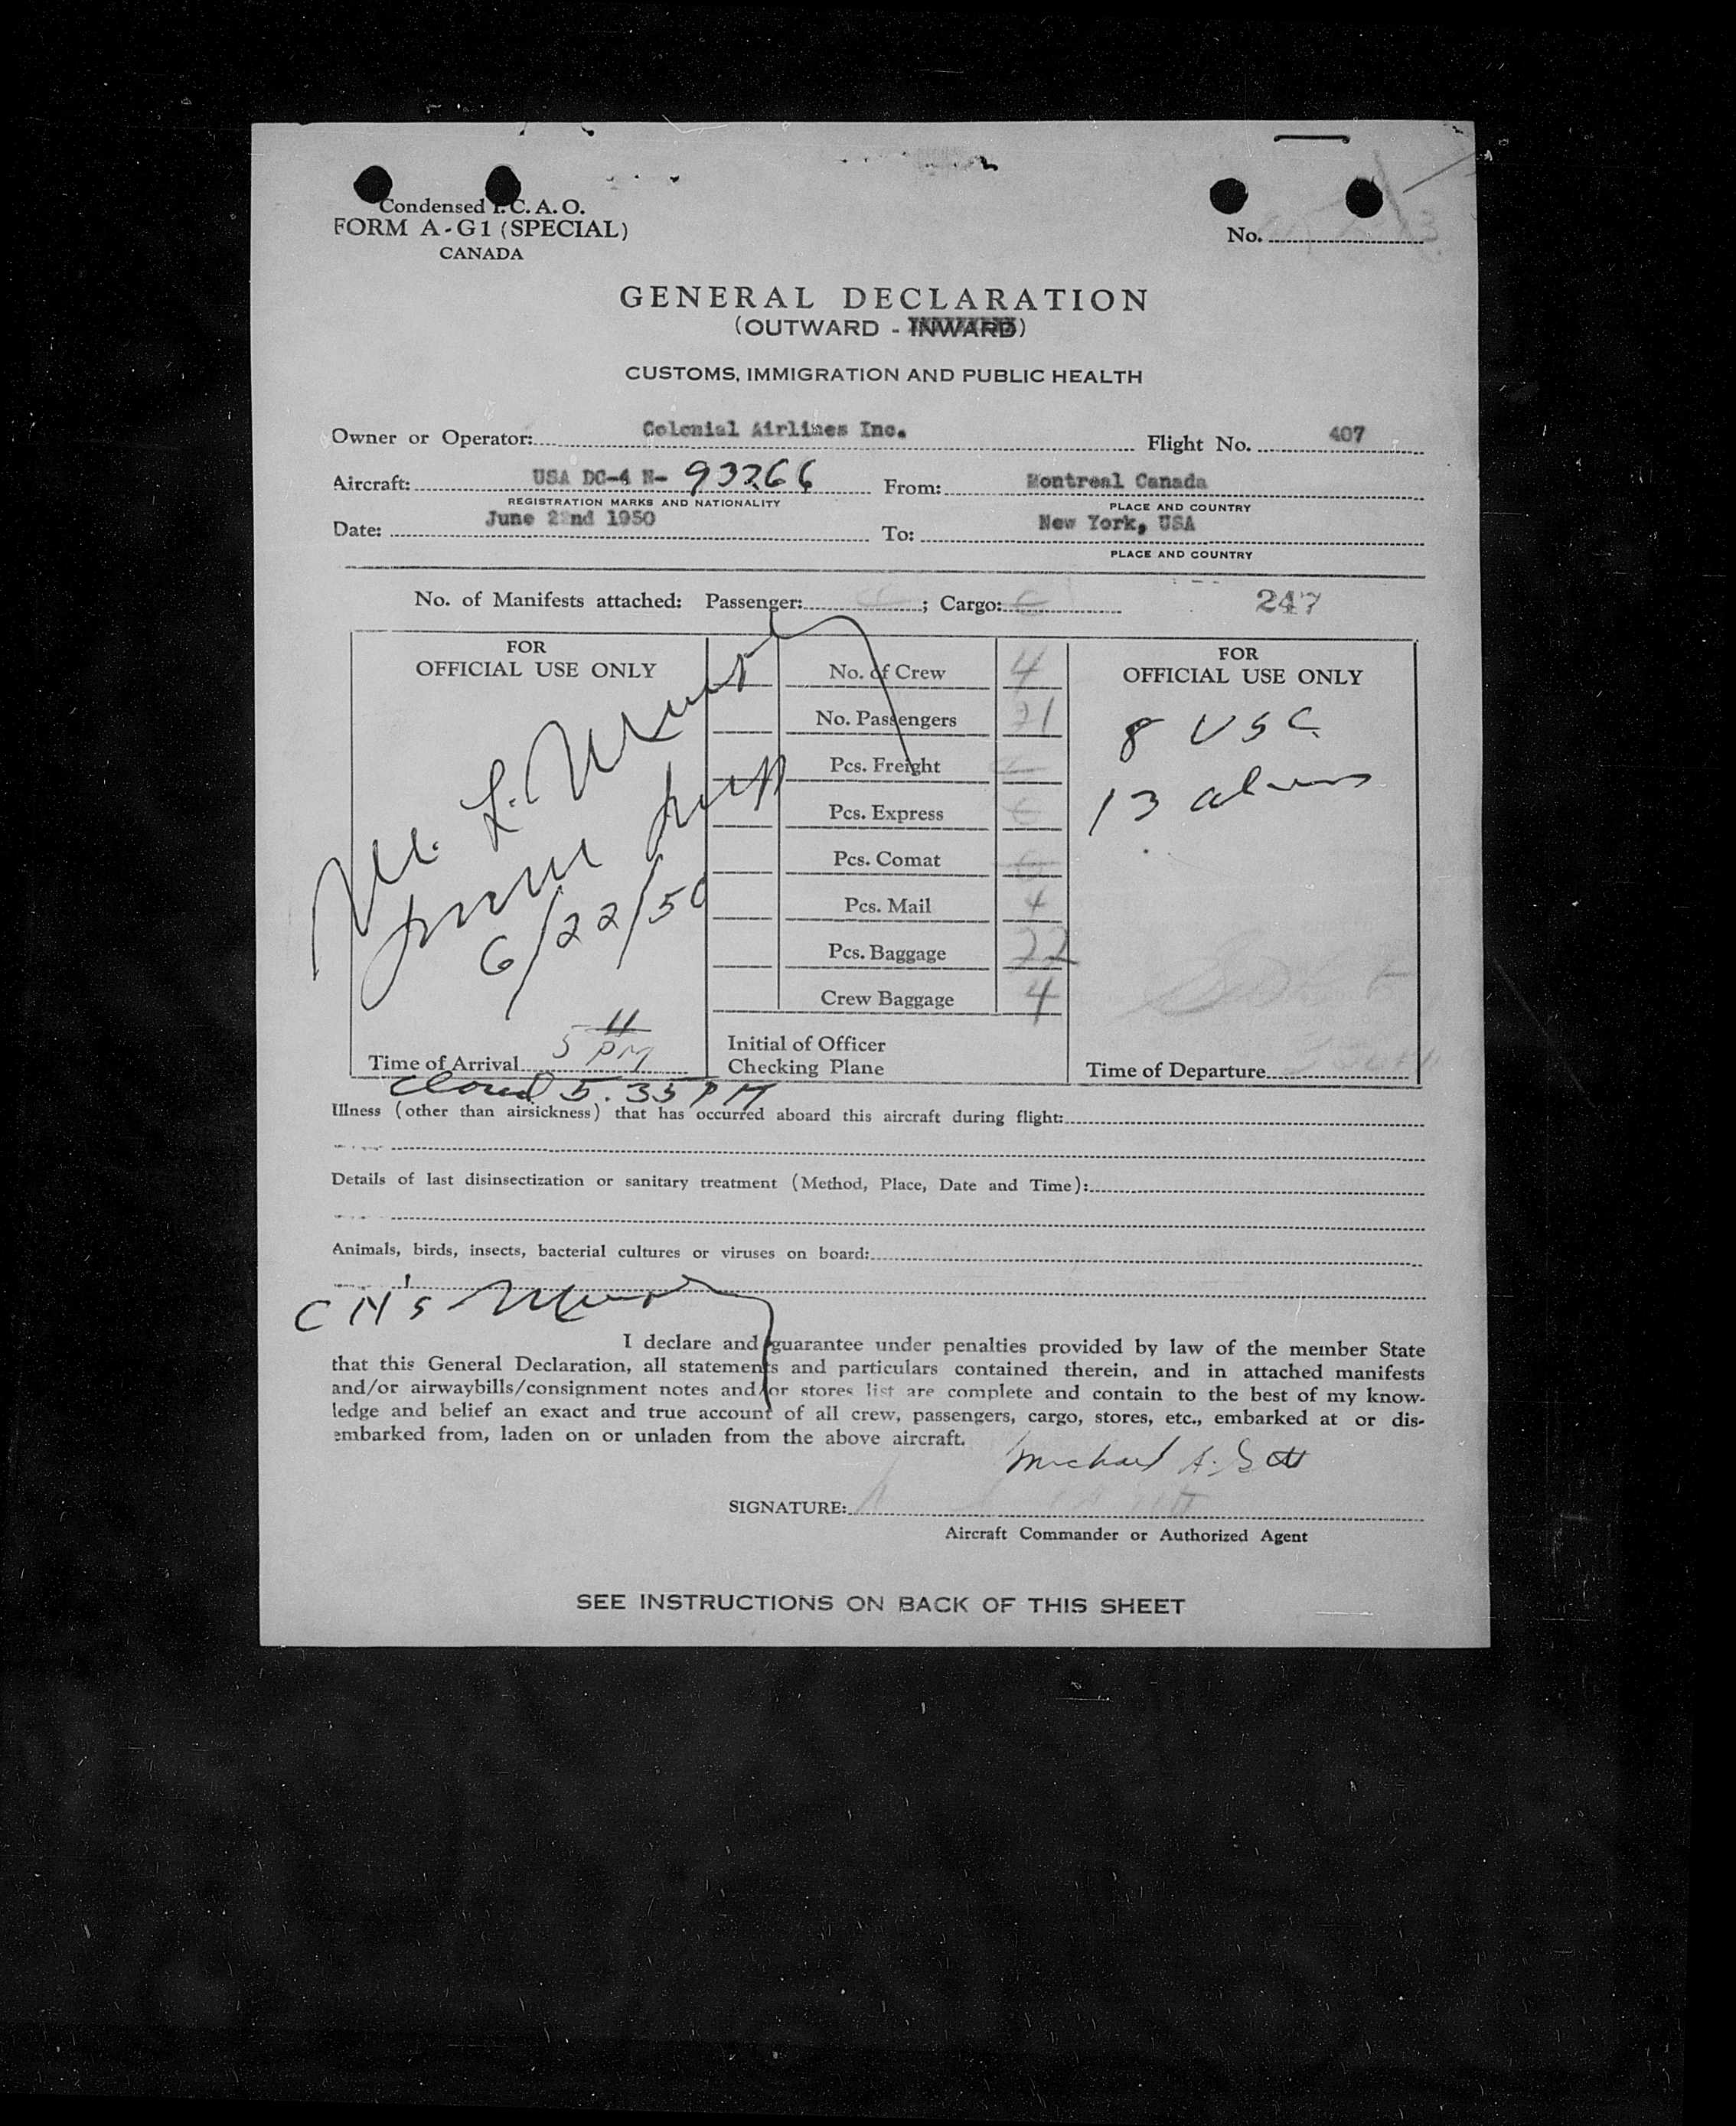 Condensed I.C.A.O.
FORM A-G1 (SPECIAL)
CANADA
No.
GENERAL DECLARATION
(OUTWARD - INWARD)
CUSTOMS, IMMIGRATION AND PUBLIC HEALTH
Owner or Operator: Colonial Airlines Inc. Flight No. 407
Aircraft: USA DC-4 N- 93266 From: Montreal Canada
REGISTRATION MARKS AND NATIONALITY PLACE AND COUNTRY
Date: June 22nd 1950 To: New York, USA
PLACE AND COUNTRY
No. of Manifests attached: Passenger: ; Cargo: 247
FOR
OFFICIAL USE ONLY
M. L.
6/22/50
5 11 PM
Time of Arrival
closed 5.35 PM
No. of Crew 4
No. Passengers 21
Pcs. Freight
Pcs. Express
Pcs. Comat
Pcs. Mail 4
Pcs. Baggage 22
Crew Baggage 4
Initial of Officer
Checking Plane
FOR
OFFICIAL USE ONLY
8 USC
13 aliens
Time of Departure
Illness (other than airsickness) that has occurred aboard this aircraft during flight:
Details of last disinsectization or sanitary treatment (Method, Place, Date and Time):
Animals, birds, insects, bacterial cultures or viruses on board:
I declare and guarantee under penalties provided by law of the member State
that this General Declaration, all statements and particulars contained therein, and in attached manifests
and/or airwaybills/consignment notes and/or stores list are complete and contain to the best of my know-
ledge and belief an exact and true account of all crew, passengers, cargo, stores, etc., embarked at or dis-
embarked from, laden on or unladen from the above aircraft.
Michael A.
SIGNATURE:
Aircraft Commander or Authorized Agent
SEE INSTRUCTIONS ON BACK OF THIS SHEET